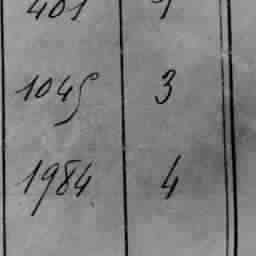 401
1045 3
1984 4